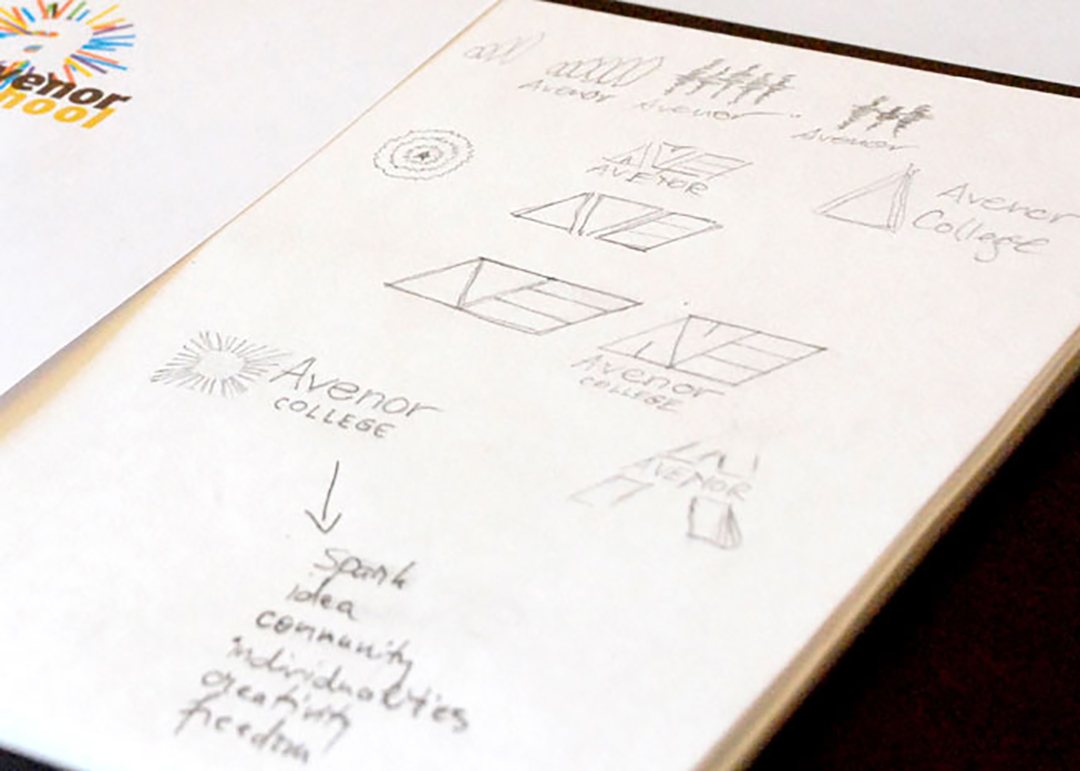 venor
hool
Avenor Avenor
Avenor
AVE
AVENOR
Avenor
College
AVE
Avenor
COLLEGE
Avenor
COLLEGE
AVENOR
Spark
idea
community
individualities
creativity
freedom